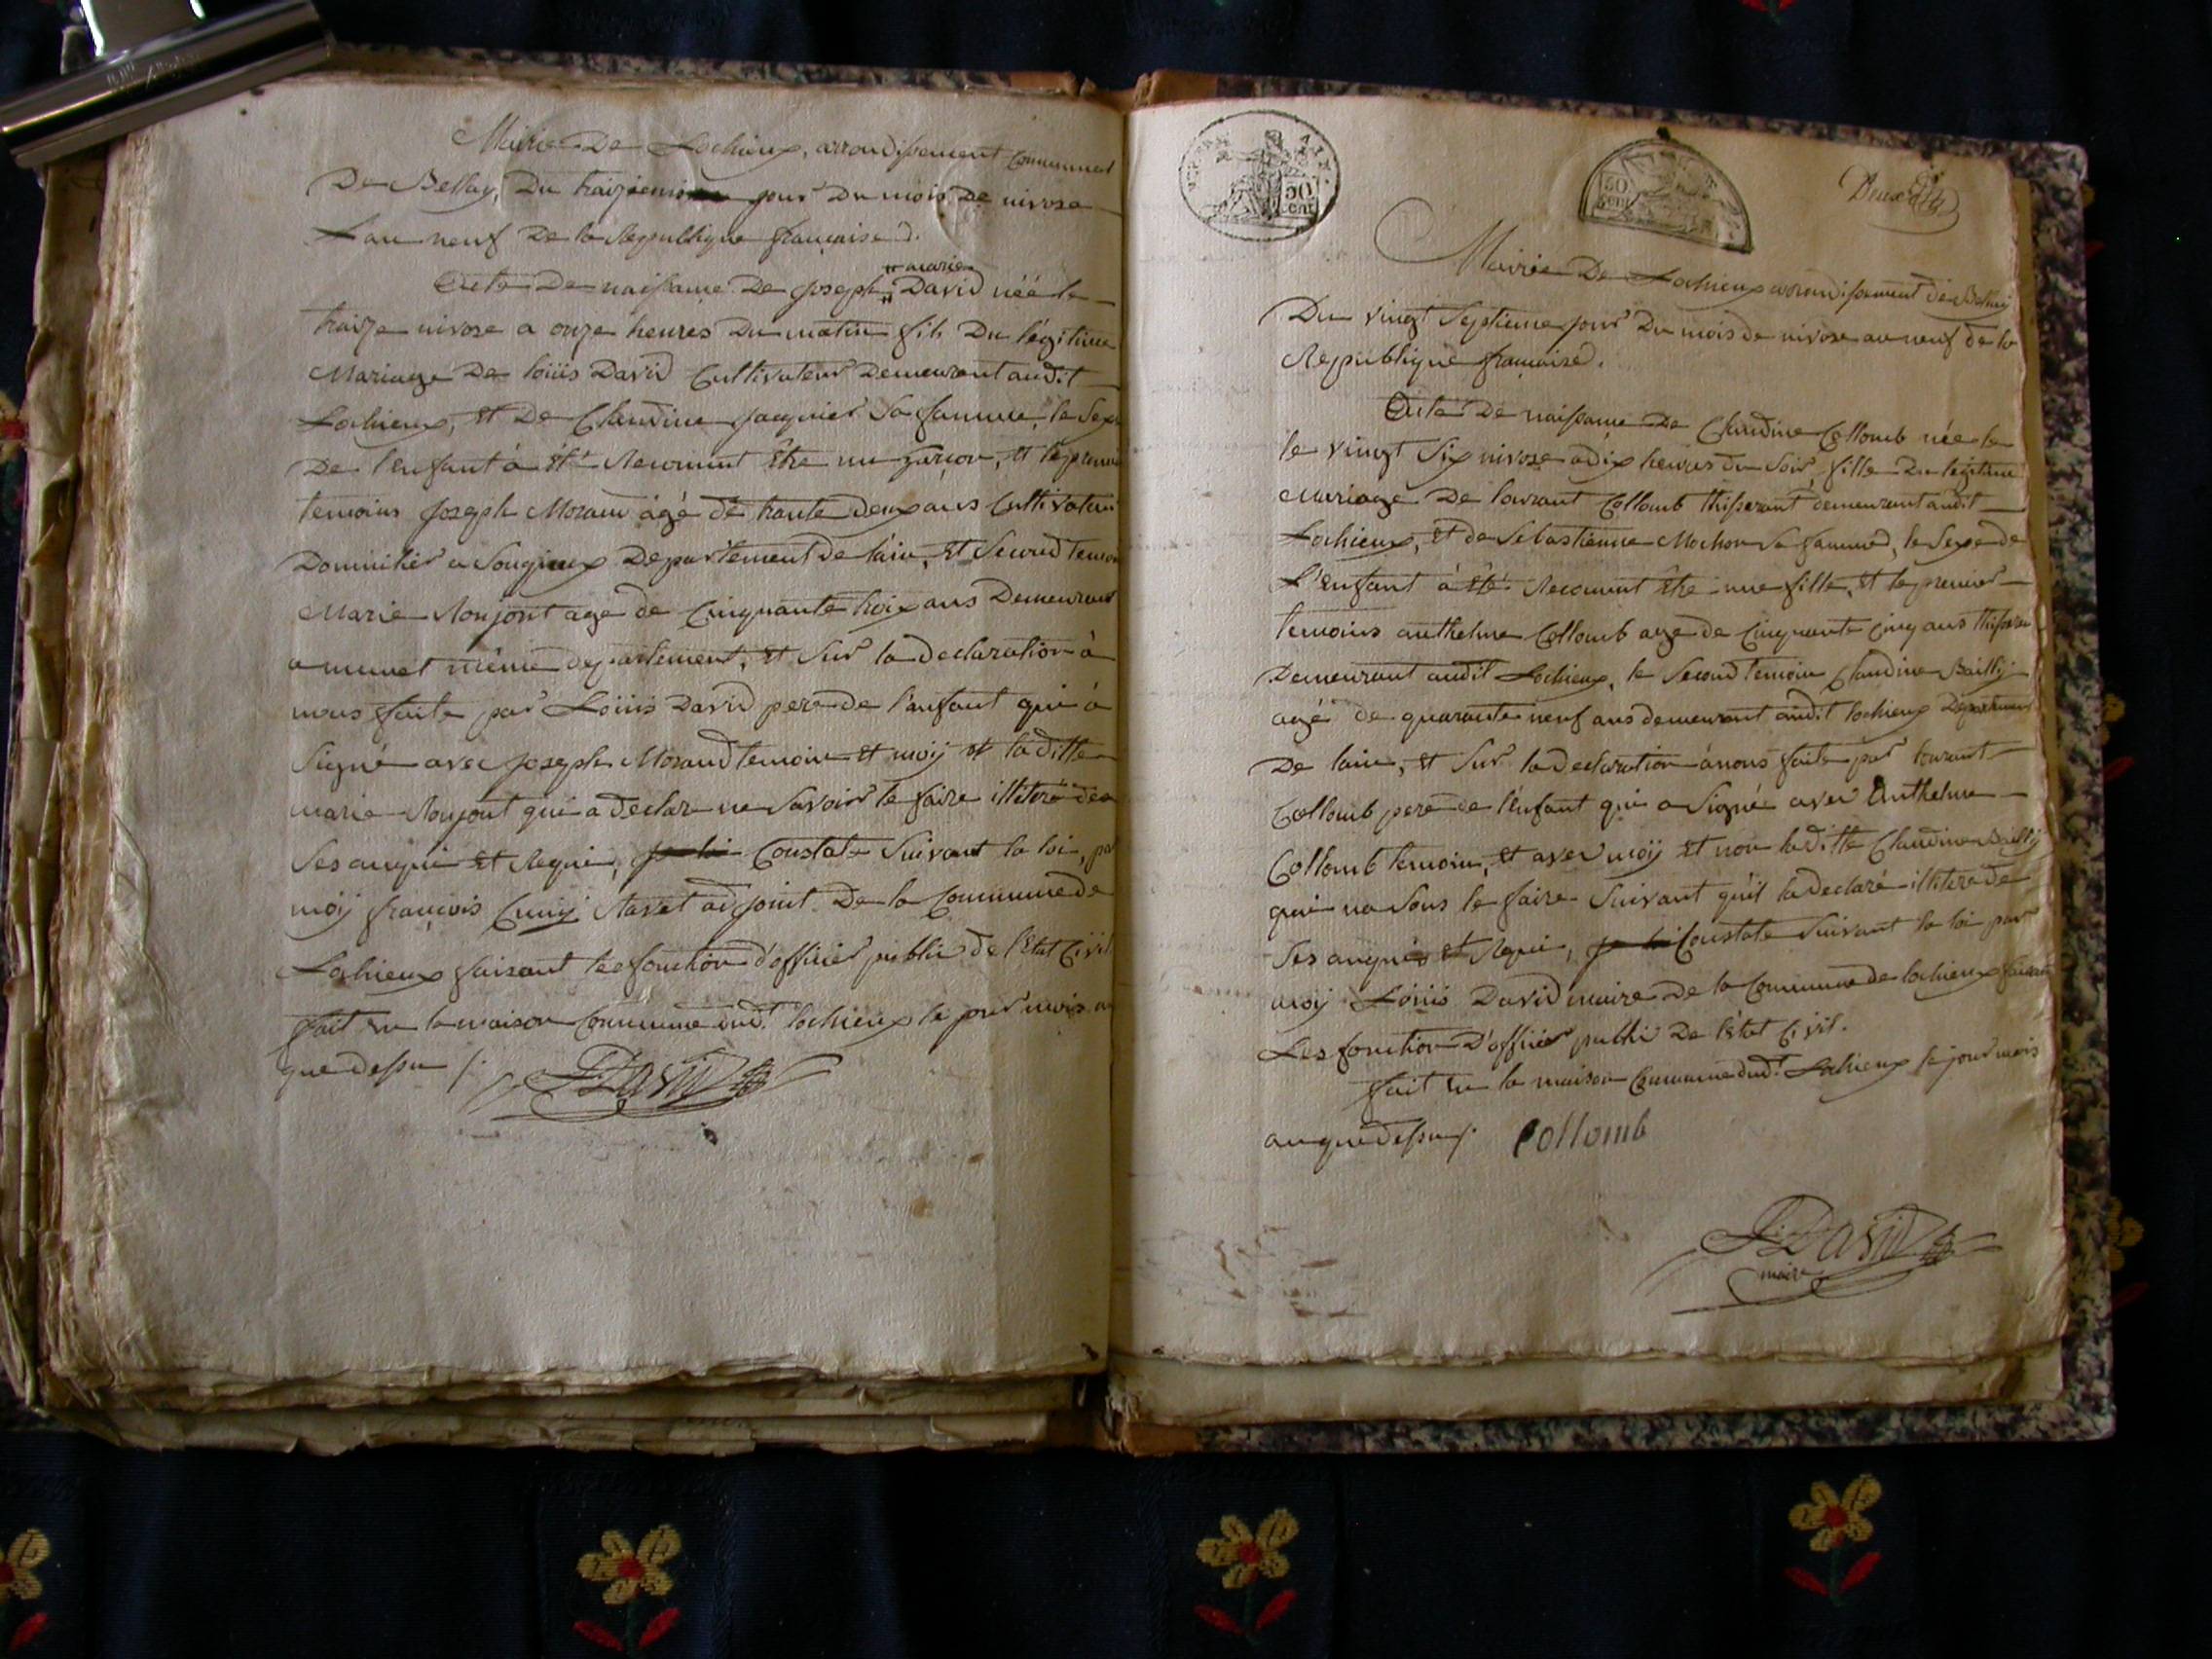 Mairie De Lochieux, arrondissement Communal
De Bellay, Du traizieme jour Du mois De nivose
Lan neuf De la Republique française.
marie
Acte De naissance De Joseph David néé le
traize nivose a onze heures Du matin fils Du légitime
Mariage De loüis David Cultivateur Demeurant audit
Lochieux, et De Claudine Jaquier Sa famme, le Sexe
De l'enfant à été Reconnut être un garcon, et le premier
temoins Joseph Morand âgé de trante deux ans Cultivateur
Dominilier a Songieux Departement de lain, et Second temoin
Marie Roujont age de Cinquante troix ans Demeurant
a munet même departement, et Sur la declaration à
nous faite par Loüis David pere de l'anfant qui à
Signé avec Joseph Morand temoin et moij et la ditte
marie Roujont qui a declare ne Savoir le faire illiteré de
Ses anquis et Requi, Constate Suivant la loi, par
moij françois Cunij Ravet adjoint De la Commune de
Lochieux faisant les fonction d'officier public de l'Etat Civil
fait en la maison Commune dud.t lochieux le jour mois an
que dessu /.
David
AIN
50 cent
50 cent
Mairie De Lochieux arrondissement de Bellaij
Du vingt Septieme jour Du mois de nivose an neuf de la
Republique française.
Acte De naissance De Claudine Collomb née le
le vingt Six nivose a dix heures du Soir, fille Du légitime
Mariage De lourant Collomb thisserant demeurant audit
Lochieux, et de Sebastienne Mochon Sa famme, le Sexe de
L'enfant à été Reconnut être une fille, et le premier
temoins anthelme Collomb age de Cinquante cinq ans thisseran
Demeurant audit Lochieux, le Second temoin Claudine Baillij
agé de quarante neuf ans demeurant audit lochieux Departement
De lain, et Sur la declaration à nous faite par lourant
Collomb pere de l'enfant qui a Signé avec Anthelme
Collomb temoin, et avec moij et non laditte Claudine Baillij
qui na Sous le faire Suivant quil la declaré illitere de
Ses anquis et Requi, Constate Suivant la loi par
moij Loüis David maire De la Commune de lochieux faisant
Les fonction D'officier public De l'état Civil.
fait en la maison Commune dud.t Lochieux le jour mois
an que dessus /. Collomb
David
maire